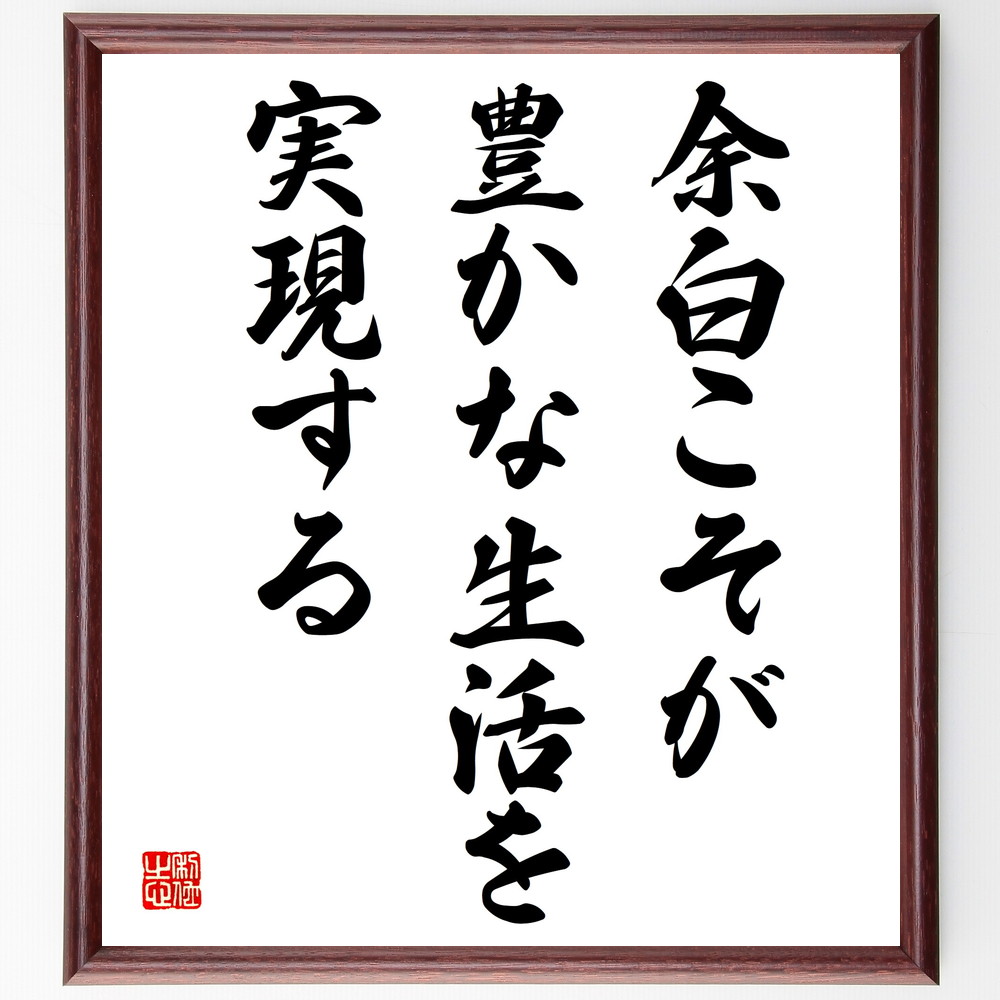 余白こそが
豊かな生活を
実現する